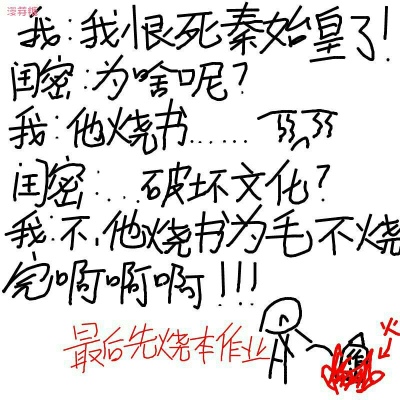 我:我恨死秦始皇了!
闰密:为啥呢?
我:他烧书......
闰密:...破坏文化?
我:不,他烧书为毛不烧
完啊啊啊!!!
最后先烧本作业
火
作